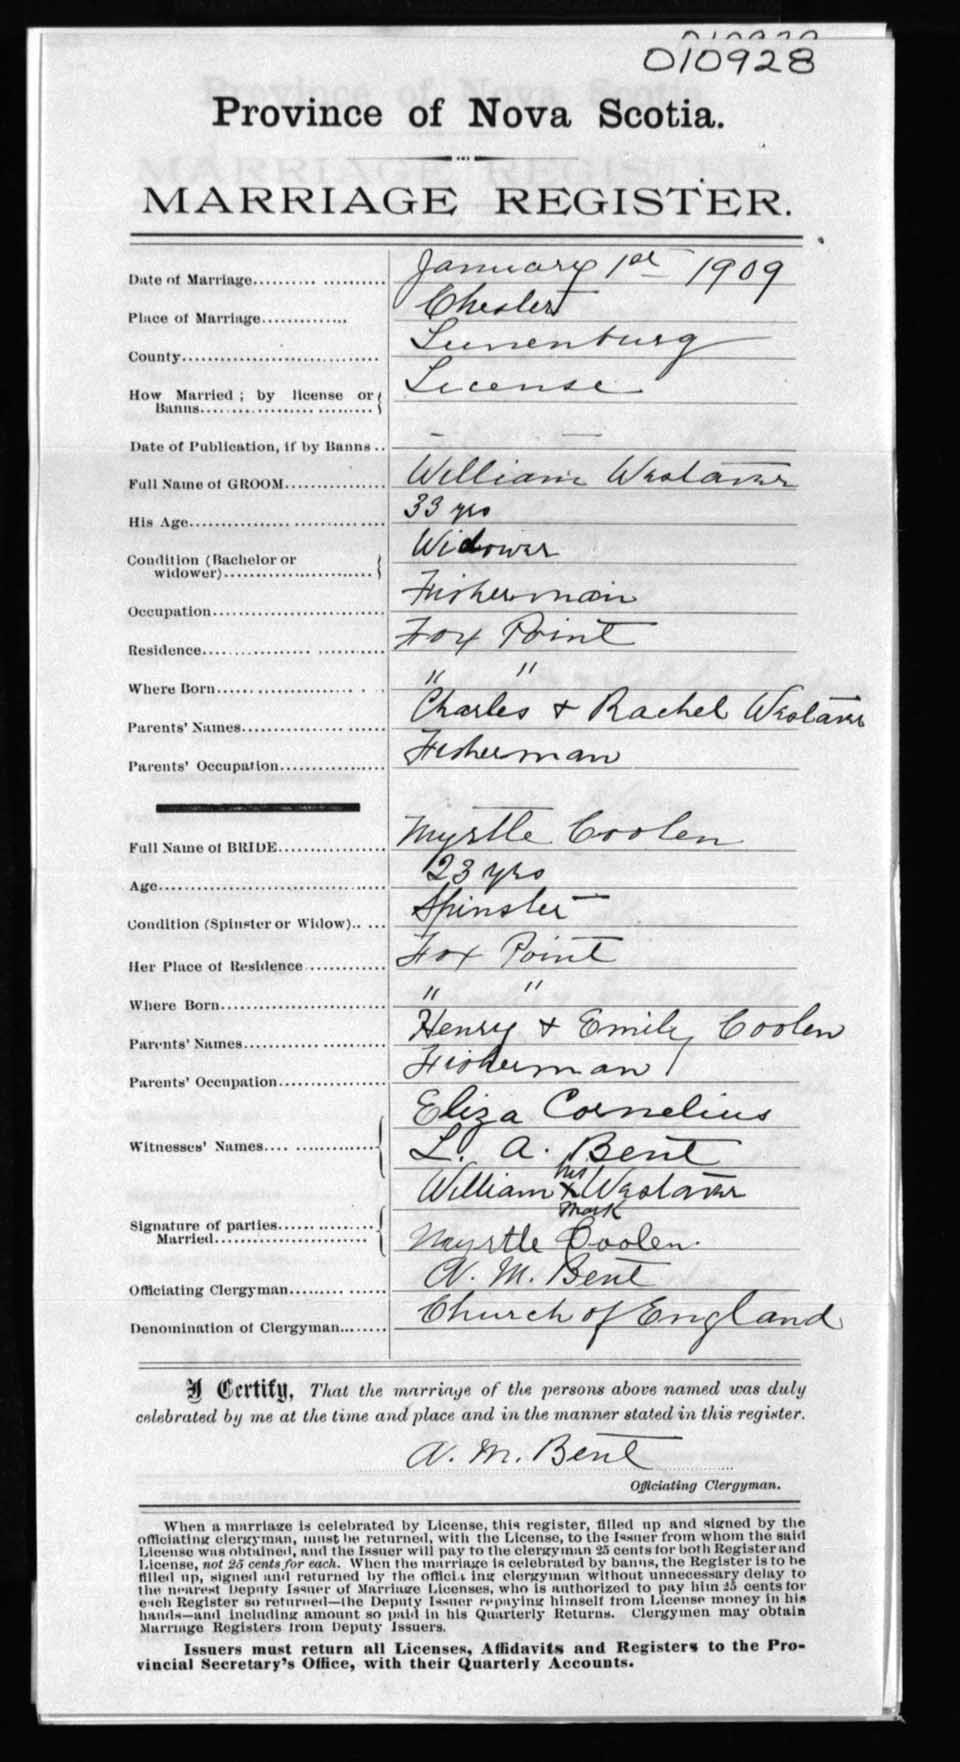 010928
Province of Nova Scotia.
MARRIAGE REGISTER.
Date of Marriage January 1st 1909
Place of Marriage Chester
County Lunenburg
How Married; by license or Banns License
Date of Publication, if by Banns — —
Full Name of GROOM William Westaver
His Age 33 yrs
Condition (Bachelor or widower) Widower
Occupation Fisherman
Residence Fox Point
Where Born " "
Parents' Names Charles + Rachel Westaver
Parents' Occupation Fisherman
Full Name of BRIDE Myrtle Coolen
Age 23 yrs
Condition (Spinster or Widow) Spinster
Her Place of Residence Fox Point
Where Born " "
Parents' Names Henry + Emily Coolen
Parents' Occupation Fisherman
Witnesses' Names Eliza Cornelius
L. A. Bent
Signature of parties Married William his X mark Westaver
Myrtle Coolen.
Officiating Clergyman A. M. Bent
Denomination of Clergyman Church of England
I Certify, That the marriage of the persons above named was duly
celebrated by me at the time and place and in the manner stated in this register.
A. M. Bent
Officiating Clergyman.
When a marriage is celebrated by License, this register, filled up and signed by the
officiating clergyman, must be returned, with the License, to the Issuer from whom the said
License was obtained, and the Issuer will pay to the clergyman 25 cents for both Register and
License, not 25 cents for each. When the marriage is celebrated by banns, the Register is to be
filled up, signed and returned by the officiating clergyman without unnecessary delay to
the nearest Deputy Issuer of Marriage Licenses, who is authorized to pay him 25 cents for
each Register so returned—the Deputy Issuer repaying himself from License money in his
hands—and including amount so paid in his Quarterly Returns. Clergymen may obtain
Marriage Registers from Deputy Issuers.
Issuers must return all Licenses, Affidavits and Registers to the Pro-
vincial Secretary's Office, with their Quarterly Accounts.